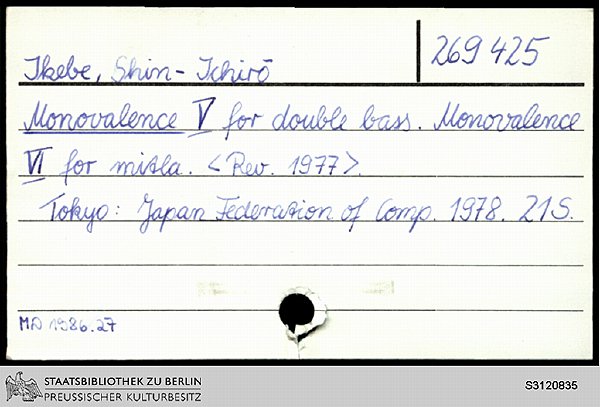 Ikebe, Shin-Ichirō
269 425
Monovalence V for double bass. Monovalence
VI for mitla. <Rev. 1977>.
Tokyo: Japan Federation of Comp. 1978. 21 S.
MA 1986.27
STAATSBIBLIOTHEK ZU BERLIN
PREUSSISCHER KULTURBESITZ
S3120835